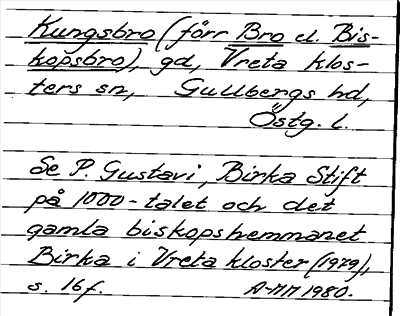 Kungsbro (förr Bro el. Bis-
kopsbro), gd, Vreta klos-
ters sn, Gullbergs hd,
Östg. l.
Se P. Gustavi, Birka Stift
på 1000-talet och det
gamla biskopshemmanet
Birka i Vreta kloster (1979),
s. 16 f. A-MM 1980.